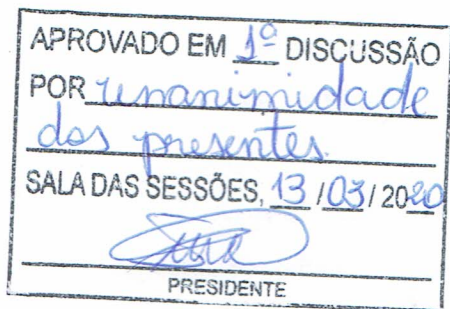 APROVADO EM 1ª DISCUSSÃO
POR unanimidade
dos presentes
SALA DAS SESSÕES, 13 / 03 / 2020
PRESIDENTE